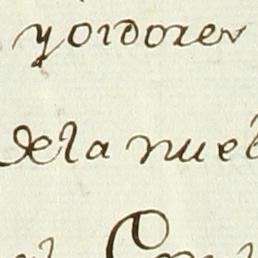 y oidores
de la nueb